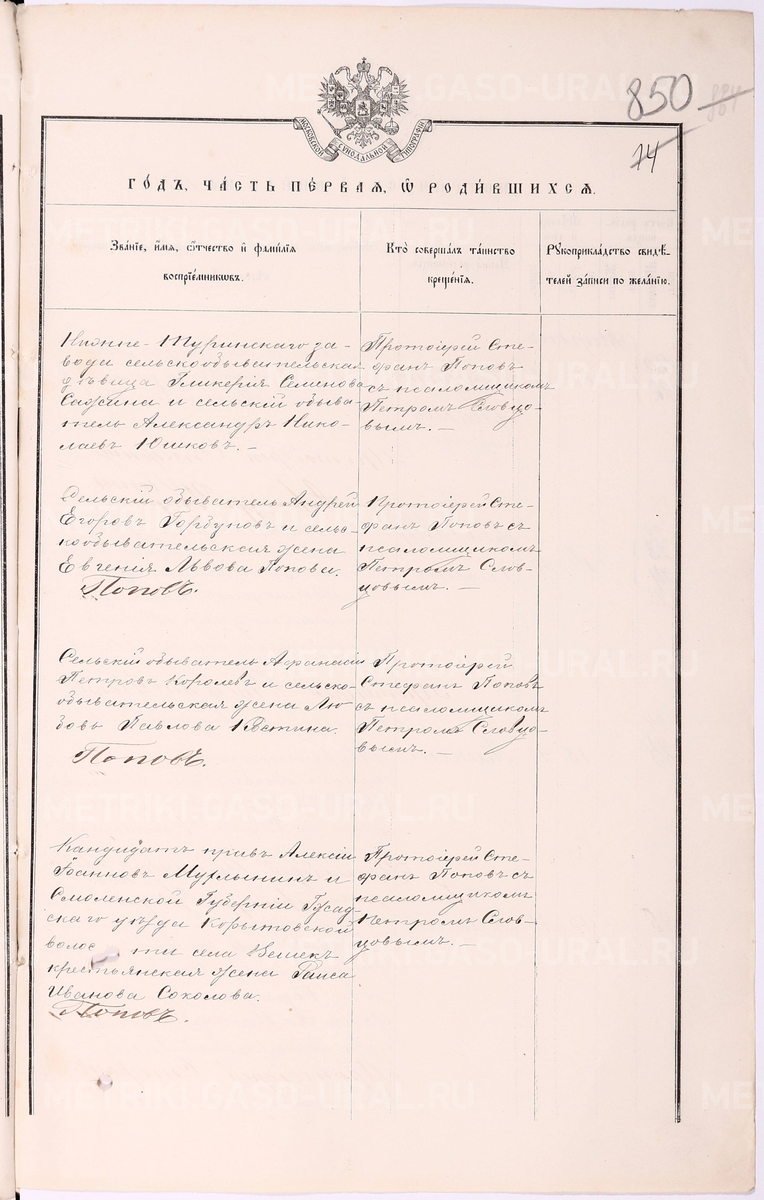 850
884
74
МОСКОВСКОЙ СѴНОДАЛЬНОЙ ТИПОГРАФІИ
ГО́ДЪ, ЧА́СТЬ ПЕ́РВАЯ, Ѡ РОДИ́ВШИХСЯ.
Зва́нїе, и҆́мѧ, ѻ҆́тчество и҆ фами́лїѧ
воспрїе́мникѡвъ.
Кто̀ соверша́лъ та́инство
креще́нїѧ.
Рꙋкоприкла́дство свидѣ́-
телей за́писи по жела́нїю.
Нижне-Туринскаго за-
вода сельскообывательская
дѣвица Гликерія Семенова
Сажина и сельскій обыва-
тель Александръ Нико-
лаевъ Юшковъ. —
Протоіерей Сте-
фанъ Поповъ
съ псаломщикомъ
Петромъ Словцо-
вымъ. —
Сельскій обыватель Андрей
Егоровъ Горбуновъ и сельс-
кообывательская жена
Евгенія Львова Попова.
Поповъ.
Протоіерей Сте-
фанъ Поповъ съ
псаломщикомъ
Петромъ Слов-
цовымъ. —
Сельскій обыватель Афанасій
Петровъ Королевъ и сельско-
обывательская жена Лю-
бовь Павлова
Поповъ.
Протоіерей
Стефанъ Поповъ
съ псаломщикомъ
Петромъ Словцо-
вымъ. —
Кандидатъ правъ Алексій
Іоанновъ Мурлынинъ и
Смоленской Губерніи
скаго уѣзда Корытовской
волос ти села
крестьянская жена Раиса
Иванова Соколова.
Поповъ.
Протоіерей Сте-
фанъ Поповъ съ
псаломщикомъ
Петромъ Слов-
цовымъ. —
METRIKI.GASO-URAL.RU
METRIKI.GASO-URAL.RU
METRIKI.GASO-URAL.RU